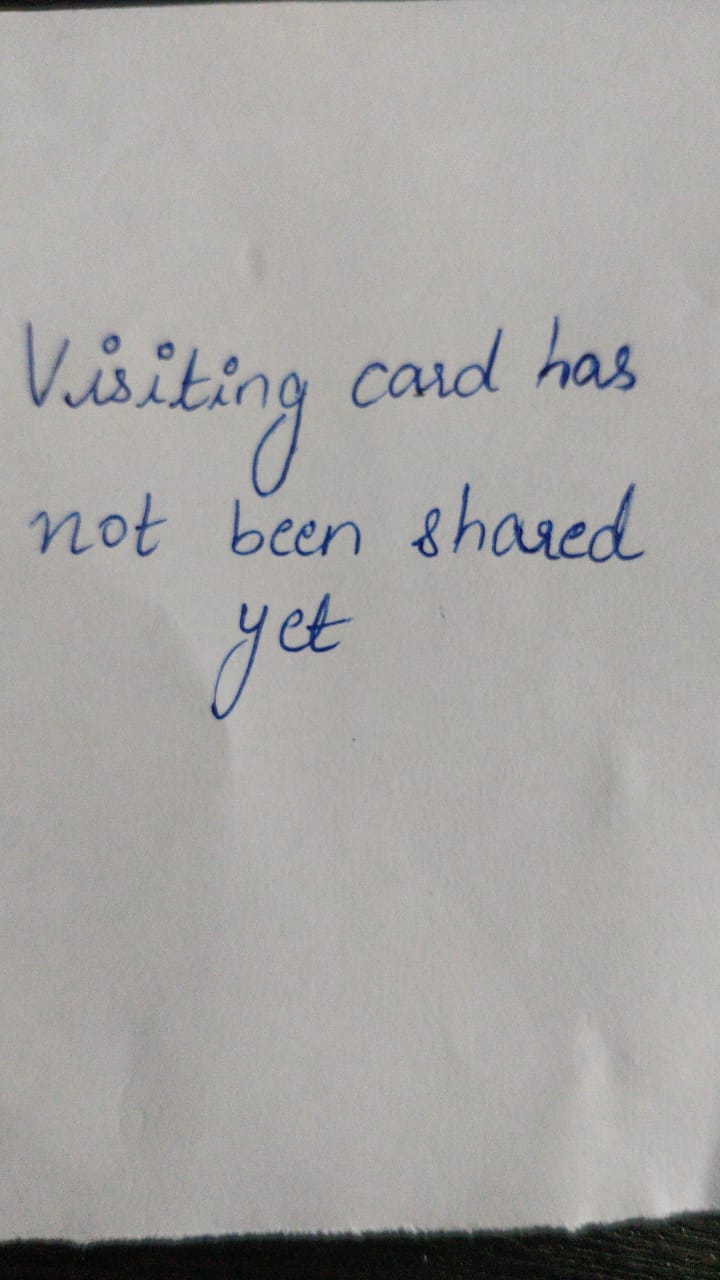 Visiting card has
not been shared
yet